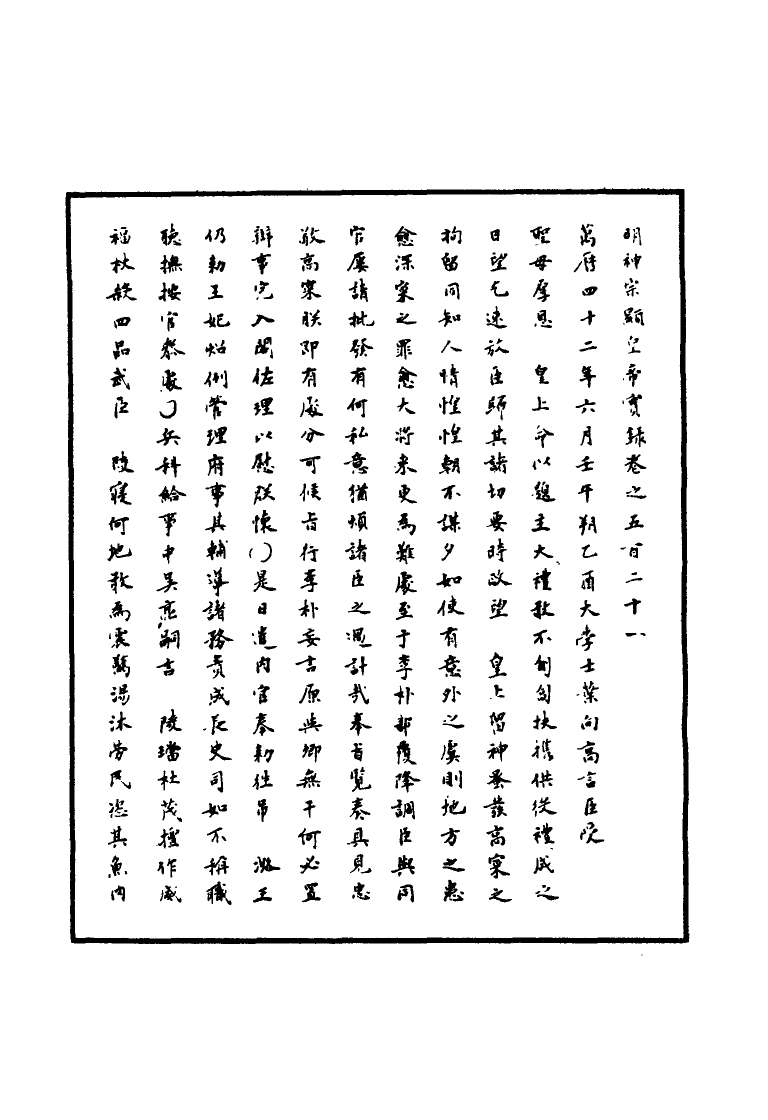 明神宗顯皇帝實録卷之五百二十一
萬曆四十二年六月壬午朔乙酉大學士葉向高言臣受
聖母厚恩　皇上命以題主大禮敢不匍匐扶携供從禮成之
日望乞速放臣歸其諸切要時政望　皇上留神蚤發高寀之
拘留同知人情惶惶朝不謀夕如使有意外之虞則地方之患
愈深寀之罪愈大將来更為難處至于李朴部覆降調臣與同
官屡請批發有何私意猶煩諸臣之過計哉奉旨覽奏具見忠
敬高寀朕即有處分可候旨行李朴妄言原與卿無干何必置
辯事完入閣佐理以慰朕懷()是日遣内官奉勅往吊　潞王
仍勅王妃炤例管理府事其輔導諸務責成長史司如不稱職
聴撫按官叅處()兵科給事中吴亮嗣言　陵璫杜茂擅作威
福杖殺四品武臣　陵寢何地敢為震驚湯沐勞民恣其魚肉